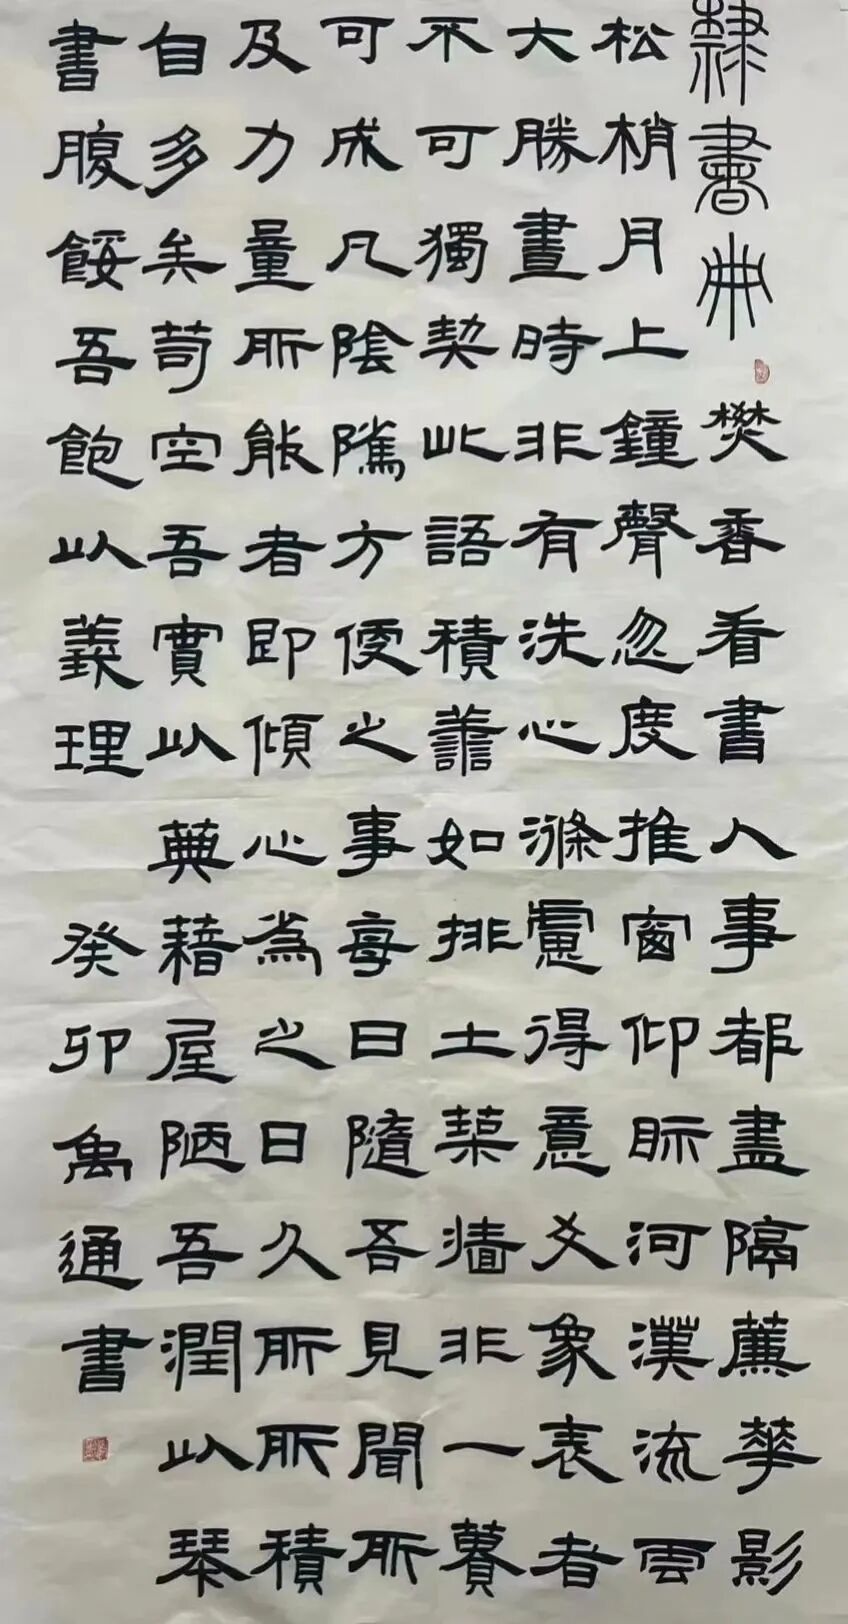 隸書冊
焚香看書人事都盡隔簾華影
松梢月上鐘聲忽度推窗仰眎河漢流雲
大勝晝時非有洗心滌慮得意爻象表者
不可獨契此語積善如排土築墻非一簣
可成凡陰隲方便之事每日隨吾見聞所
及力量所能者即傾心為之日久所所積
自多矣苛空吾實以典藉屋陋吾潤以琴
書腹餒吾飽以義理
癸卯禹通書